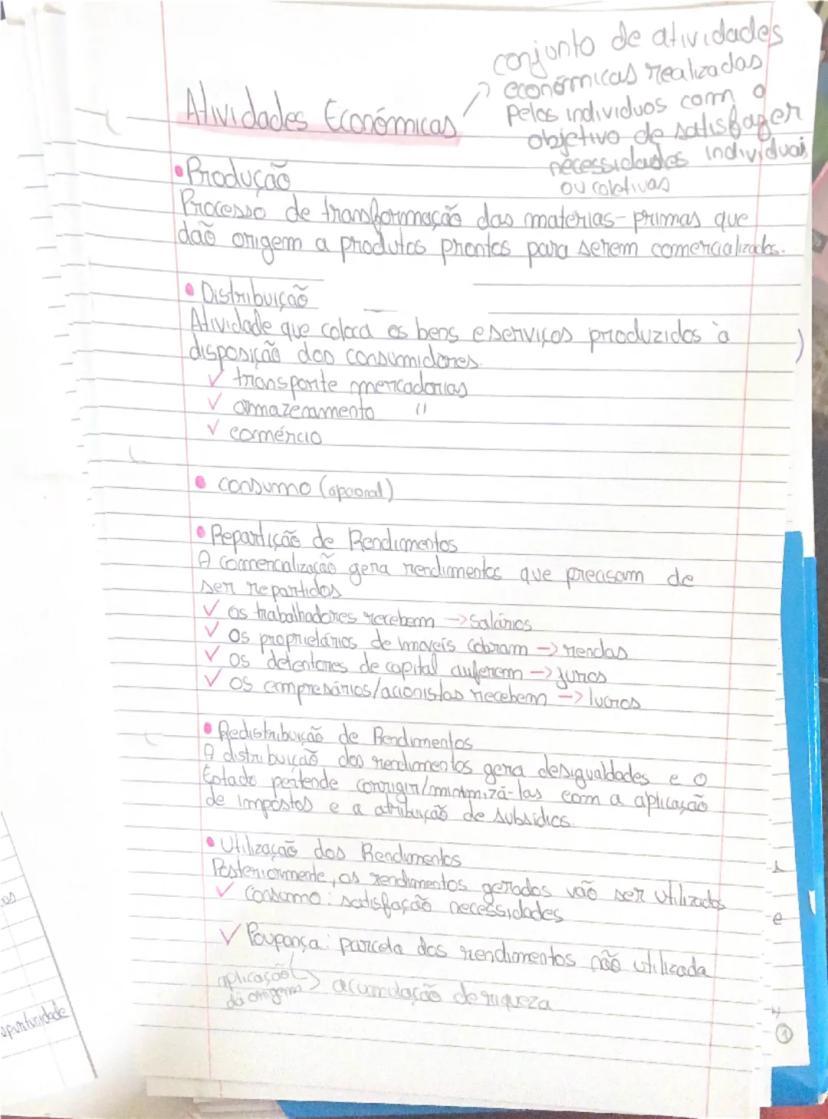 Atividades Económicas
conjunto de atividades
económicas realizadas
pelos individuos com o
objetivo de satisfazer
necessidades individuais
ou coletivas
• Produção
Processo de transformação das materias-primas que
dão origem a produtos prontos para serem comercializados.
• Distribuição
Atividade que coloca os bens e serviços produzidos à
disposição dos consumidores
✓ transporte mercadorias
✓ armazenamento "
✓ comércio
• consumo (opcional)
• Repartição de Rendimentos
A comercialização gera rendimentos que precisam de
ser repartidos
✓ os trabalhadores recebem → salários
✓ Os proprietários de imoveis cobram → rendas
✓ Os detentores de capital auferem → juros
✓ Os empresários/acionistas recebem → lucros
• Redistribuição de Rendimentos
A distribuição dos rendimentos gera desigualdades e o
Estado pertende corrigir/minimizá-las com a aplicação
de impostos e a atribuição de subsidios.
• Utilização dos Rendimentos
Posteriormente, os rendimentos gerados vão ser utilizados
✓ Consumo: satisfação necessidades
✓ Poupança: parcela dos rendimentos não utilizada
aplicação
dá origem > acumulação de riqueza
1
os
oportunidade
e